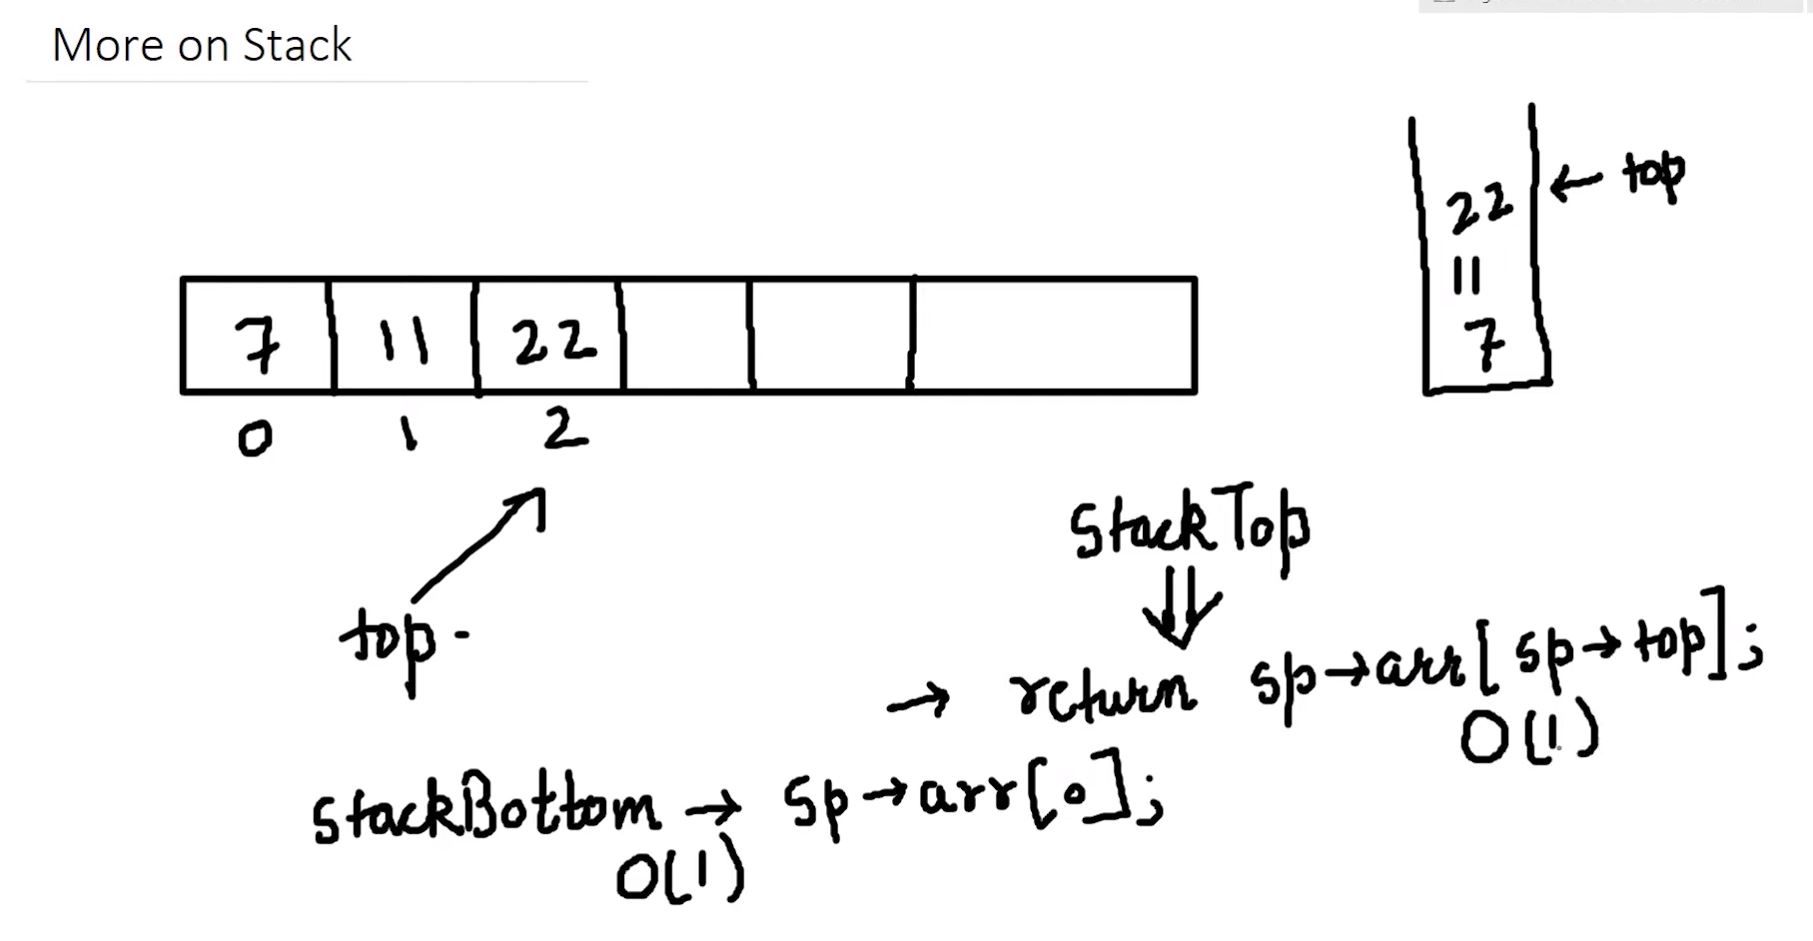 More on Stack
← top
22
11
7
7 11 22
0 1 2
top -
StackTop
⇓
→ return sp→arr[sp→top];
O(1)
stackBottom → sp→arr[0];
O(1)